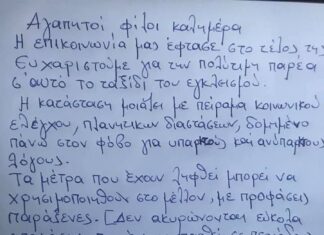 Αγαπητοί φίλοι καλημέρα
Η επικοινωνία μας έφτασε στο τέλος της
Ευχαριστούμε για την πολύτιμη παρέα
σ' αυτό το ταξίδι του εγκλεισμού.
Η κατάσταση μοιάζει με πείραμα κοινωνικού
ελέγχου, πλανητικών διαστάσεων, δομημένο
πάνω στον φόβο για υπαρκτούς και ανύπαρκτους
λόγους.
Τα μέτρα που έχουν ληφθεί μπορεί να
χρησιμοποιηθούν στο μέλλον, με προφάσεις
παράξενες. [Δεν ακυρώνονται εύκολα